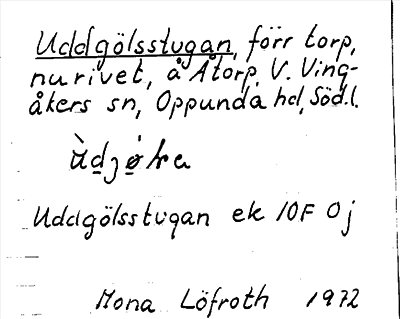 Uddgölsstugan, förr torp,
nu rivet, å Åtorp, V. Ving-
åkers sn, Oppunda hd, Söd.l.
Uddgölsstugan ek 10F 0j
Mona Löfroth 1972